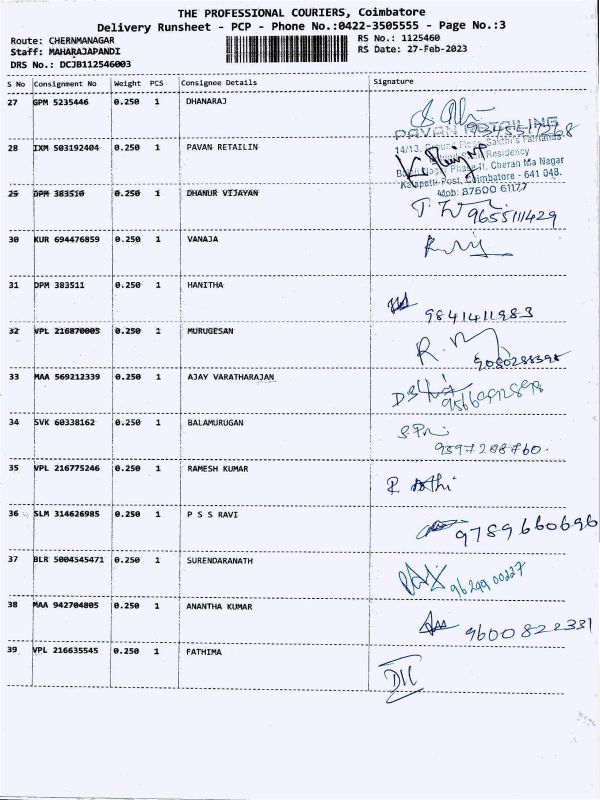 THE PROFESSIONAL COURIERS, Coimbatore
Delivery Runsheet - PCP - Phone No.:0422-3505555 - Page No.:3
Route: CHERNMANAGAR
RS No.: 1125460
Staff: MAHARAJAPANDI
RS Date: 27-Feb-2023
DRS No.: DCJB112546003
S No Consignment No Weight PCS Consignee Details Signature
27 GPM 5235446 0.250 1 DHANARAJ
PAVAN RETAILING
28 IXM 503192404 0.250 1 PAVAN RETAILIN
Residency
Cheran Ma Nagar
Kalapatti Post, Coimbatore - 641 048.
Mob: 87600 61177
29 DPM 383510 0.250 1 DHANUR VIJAYAN
9655111429
30 KUR 694476859 0.250 1 VANAJA
31 DPM 383511 0.250 1 HANITHA
9841411983
32 VPL 216870005 0.250 1 MURUGESAN
33 MAA 569212339 0.250 1 AJAY VARATHARAJAN
34 SVK 60338162 0.250 1 BALAMURUGAN
35 VPL 216775246 0.250 1 RAMESH KUMAR
36 SLM 314626985 0.250 1 P S S RAVI
9789660696
37 BLR 5004545471 0.250 1 SURENDARANATH
38 MAA 942704805 0.250 1 ANANTHA KUMAR
9600822331
39 VPL 216635545 0.250 1 FATHIMA